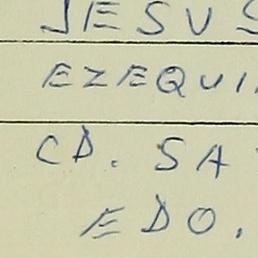 JESUS
EZEQUI
CD. SA
EDO.